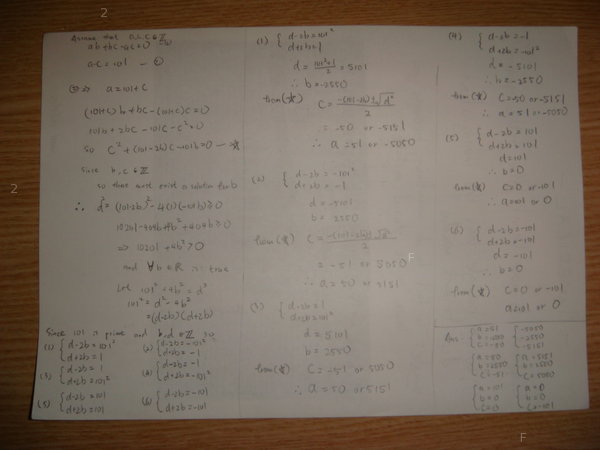 2
2
F
F
Assume that a,b,c ∈ Z
ab+bc-ac=0 -①
a-c=101 -②
②⇒ a=101+c
(101+c)b+bc-(101+c)c=0
101b+2bc-101c-c²=0
so c²+(101-2b)c-101b=0 -☆
Since b,c ∈ Z
so there must exist a solution for b
∴ d²=(101-2b)²-4(1)(-101b)≥0
10201-404b+4b²+404b≥0
⇒ 10201+4b²≥0
and ∀b∈R is true
Let 101²+4b²=d²
101²=d²-4b²
=(d-2b)(d+2b)
Since 101 is prime and b,d ∈ Z so
(1) { d-2b=101²
d+2b=1
(2) { d-2b=-101²
d+2b=-1
(3) { d-2b=1
d+2b=101²
(4) { d-2b=-1
d+2b=-101²
(5) { d-2b=101
d+2b=101
(6) { d-2b=-101
d+2b=-101
(1) { d-2b=101²
d+2b=1
d=(101²+1)/2=5101
∴ b=-2550
from(☆) c=(-(101-2b)±√d²)/2
=-50 or -5151
∴ a=51 or -5050
(2) { d-2b=-101²
d+2b=-1
d=-5101
b=2550
from(☆) c=(-(101-2b)±√d²)/2
=-51 or 5050
∴ a=50 or 5151
(3) { d-2b=1
d+2b=101²
d=5101
b=2550
from(☆) c=-51 or 5050
∴ a=50 or 5151
(4) { d-2b=-1
d+2b=-101²
d=-5101
∴ b=-2550
from(☆) c=-50 or -5151
∴ a=51 or -5050
(5) { d-2b=101
d+2b=101
d=101
∴ b=0
from(☆) c=0 or -101
∴ a=101 or 0
(6) { d-2b=-101
d+2b=-101
d=-101
∴ b=0
from(☆) c=0 or -101
a=101 or 0
Ans: { a=51 { -5050
b=-2550 -2550
c=-50 -5151
{ a=50 { a=5151
b=2550 b=2550
c=-51 c=5050
{ a=101 { a=0
b=0 b=0
c=0 c=-101